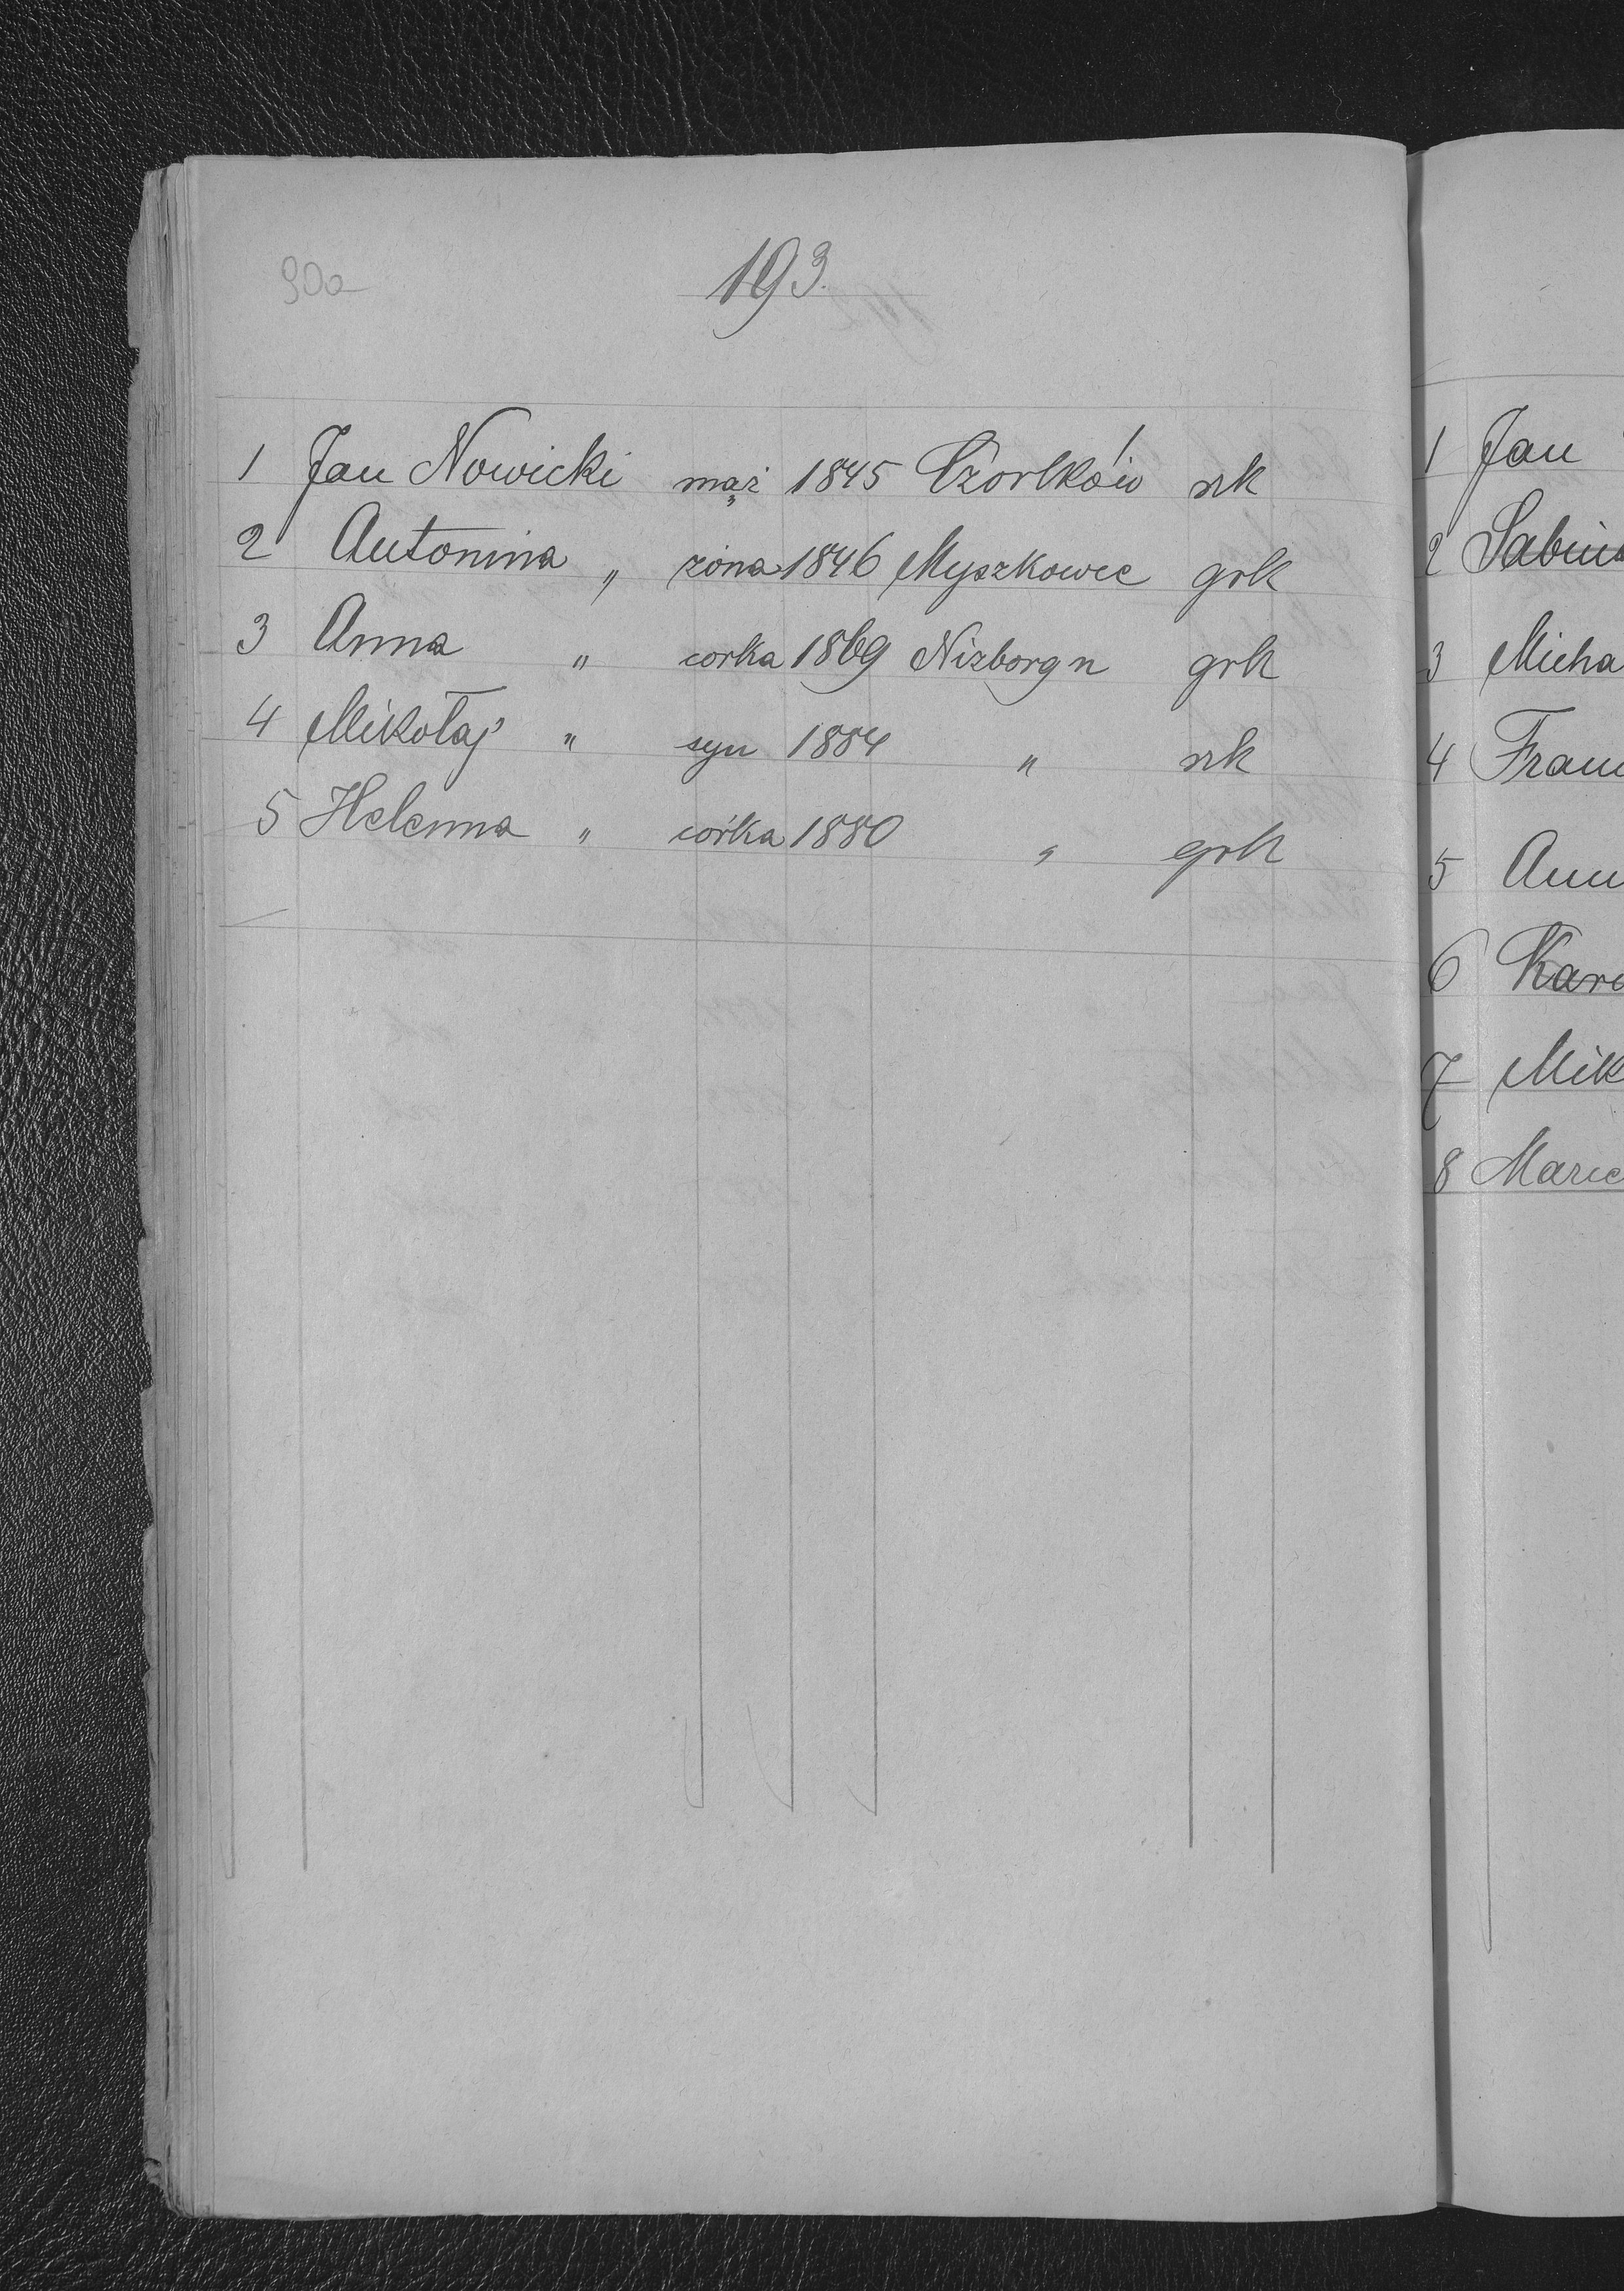 90a
193.
1 Jan Nowicki mąż 1845 Czortków rzk
2 Antonina " żona 1846 Myszkowce grk
3 Anna " corka 1869 Nizborg n grk
4 Mikołaj " syn 1884 " rzk
5 Helenna " córka 1880 " grk
1 Jan
2 Sabin
3 Micha
4 Fran
5 Ann
6 Karo
7 Mik
8 Marc